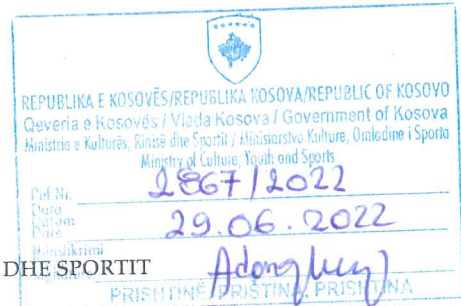 REPUBLIKA E KOSOVËS/REPUBLIKA KOSOVA/REPUBLIC OF KOSOVO
Qeveria e Kosovës / Vlada Kosova / Government of Kosova
Ministria e Kulturës, Rinisë dhe Sportit / Ministarstvo Kulture, Omladine i Sporta
Ministry of Culture, Youth and Sports
Ref.Nr. 2867/2022
Data
Datum
Date 29.06.2022
DHE SPORTIT
PRISHTINË PRIŠTINA PRISHTINA